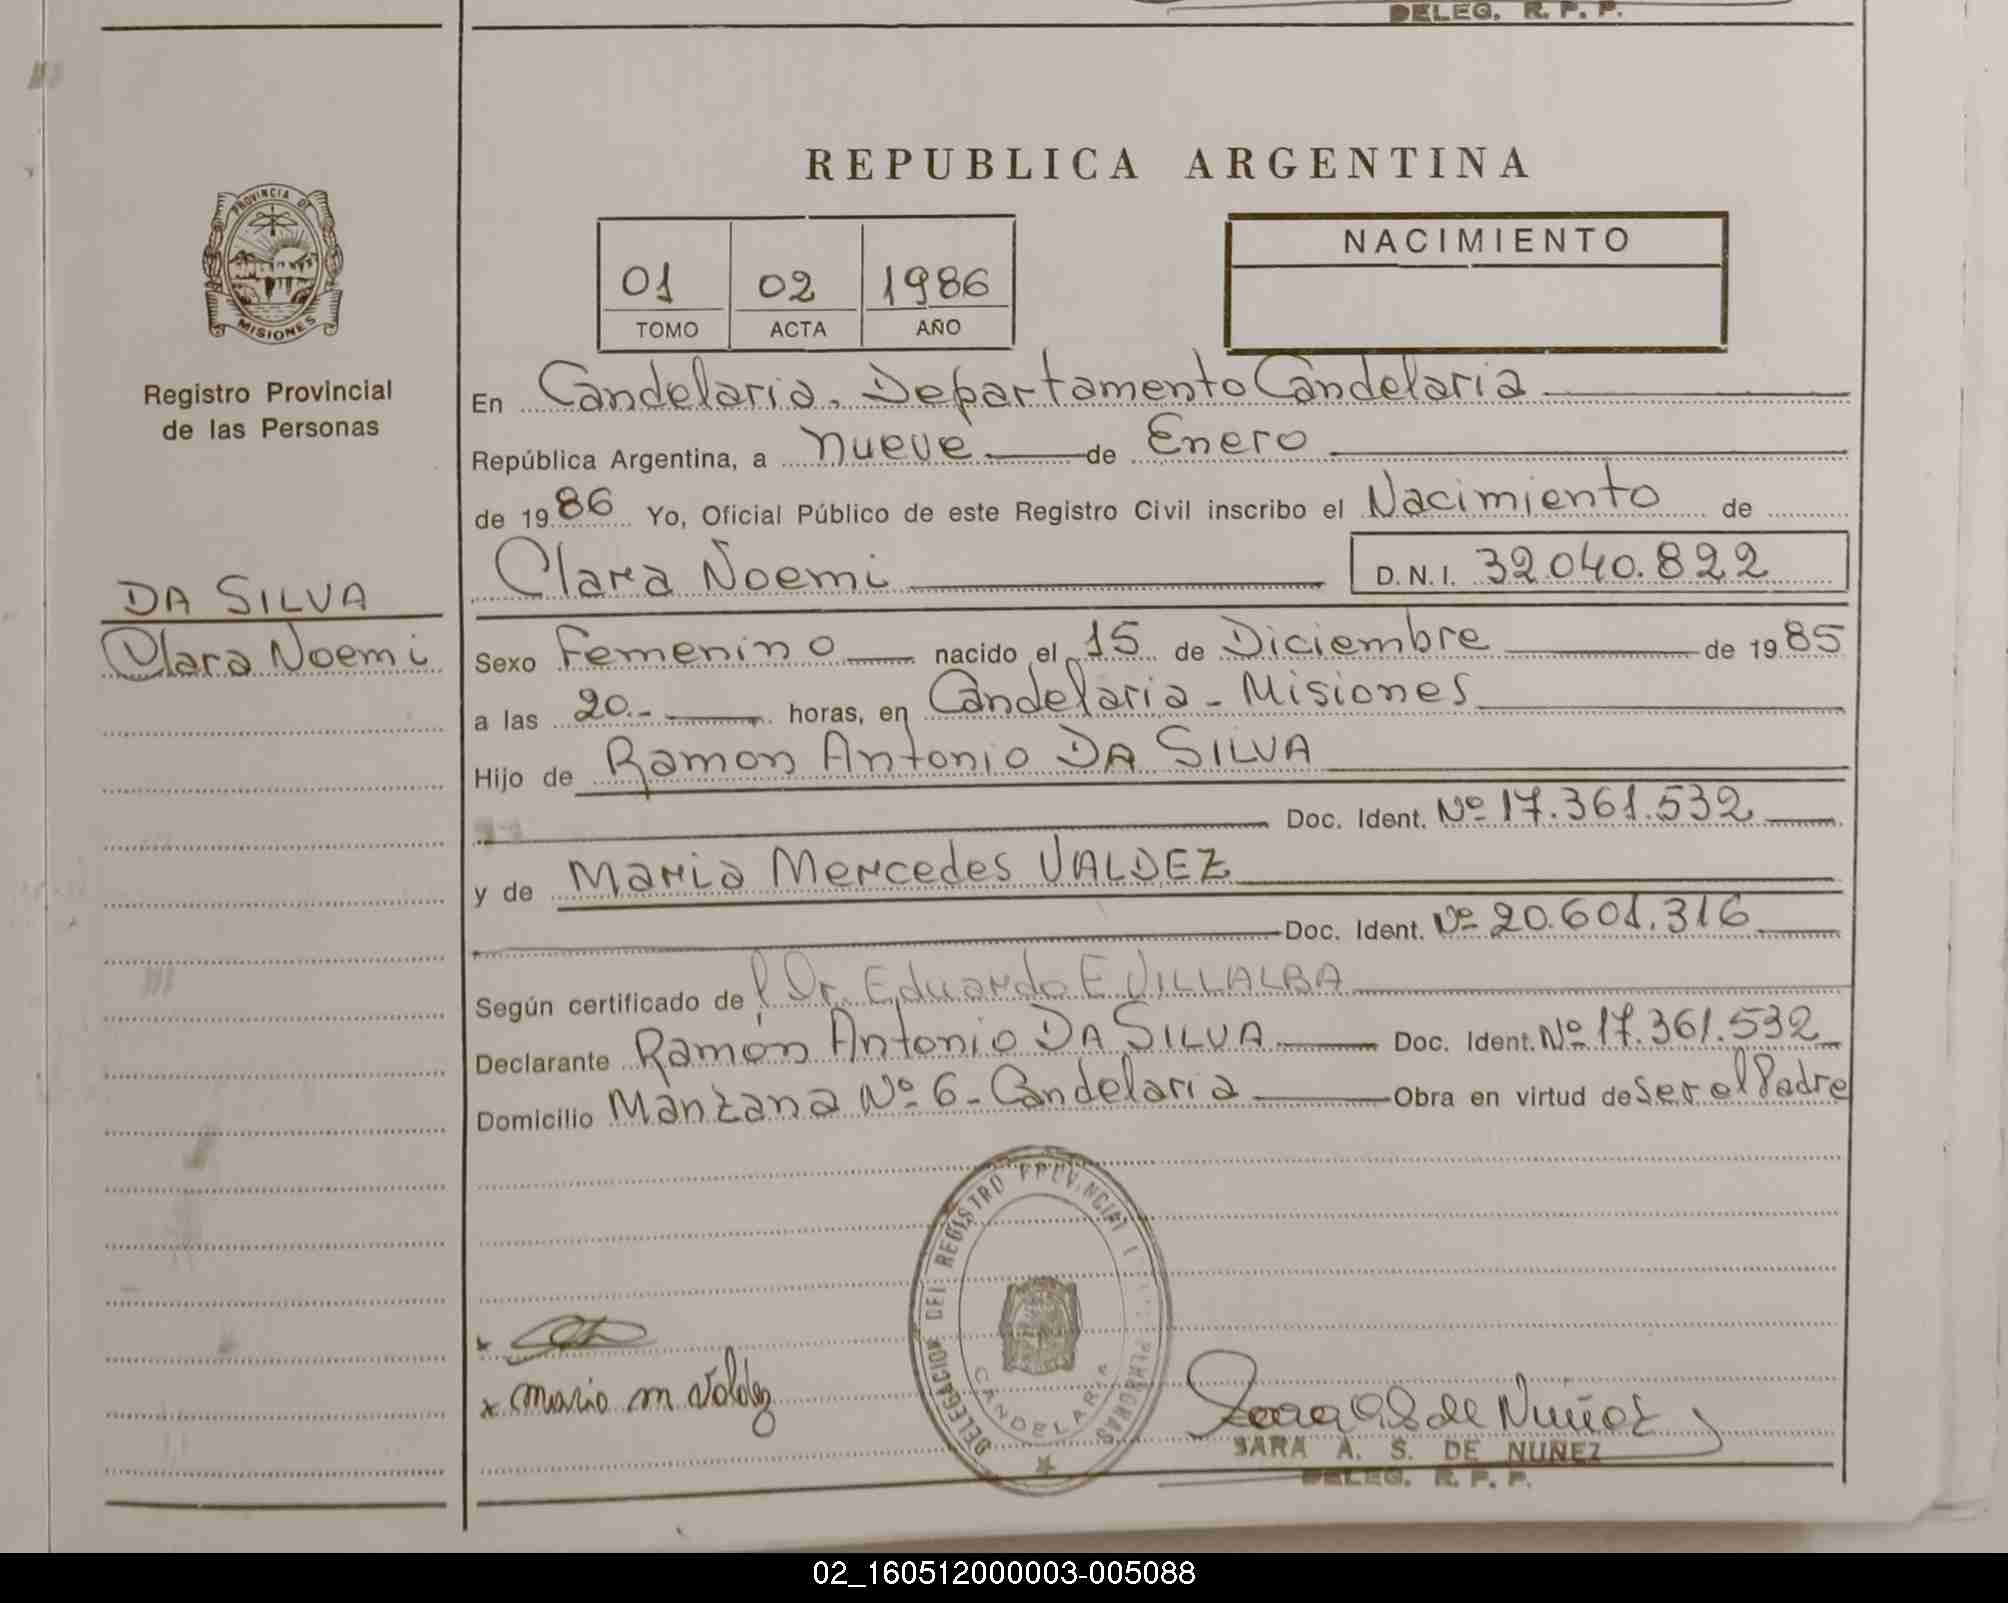 DELEG. R. P. P.
REPUBLICA ARGENTINA
PROVINCIA DE
MISIONES
Registro Provincial
de las Personas
01 02 1986
TOMO ACTA AÑO
NACIMIENTO
En Candelaria. Departamento Candelaria
República Argentina, a nueve de Enero
de 1986 Yo, Oficial Público de este Registro Civil inscribo el Nacimiento de
Clara Noemi D.N.I. 32.040.822
DA SILVA
Clara Noemi
Sexo Femenino nacido el 15 de Diciembre de 1985
a las 20.- horas, en Candelaria - Misiones
Hijo de Ramon Antonio DA SILVA
Doc. Ident. Nº 17.361.532
y de Maria Mercedes VALDEZ
Doc. Ident. Nº 20.601.316
Según certificado de Dr. Eduardo E VILLALBA
Declarante Ramón Antonio DA SILVA Doc. Ident. Nº 17.361.532
Domicilio Manzana Nº 6 - Candelaria Obra en virtud de Ser el Padre
DELEGACION DEL REGISTRO PROVINCIAL PERSONAS
CANDELARIA
x maria m valdez
Sara A S de Nuñez
SARA A. S. DE NUÑEZ
DELEG. R. P. P.
02_160512000003-005088